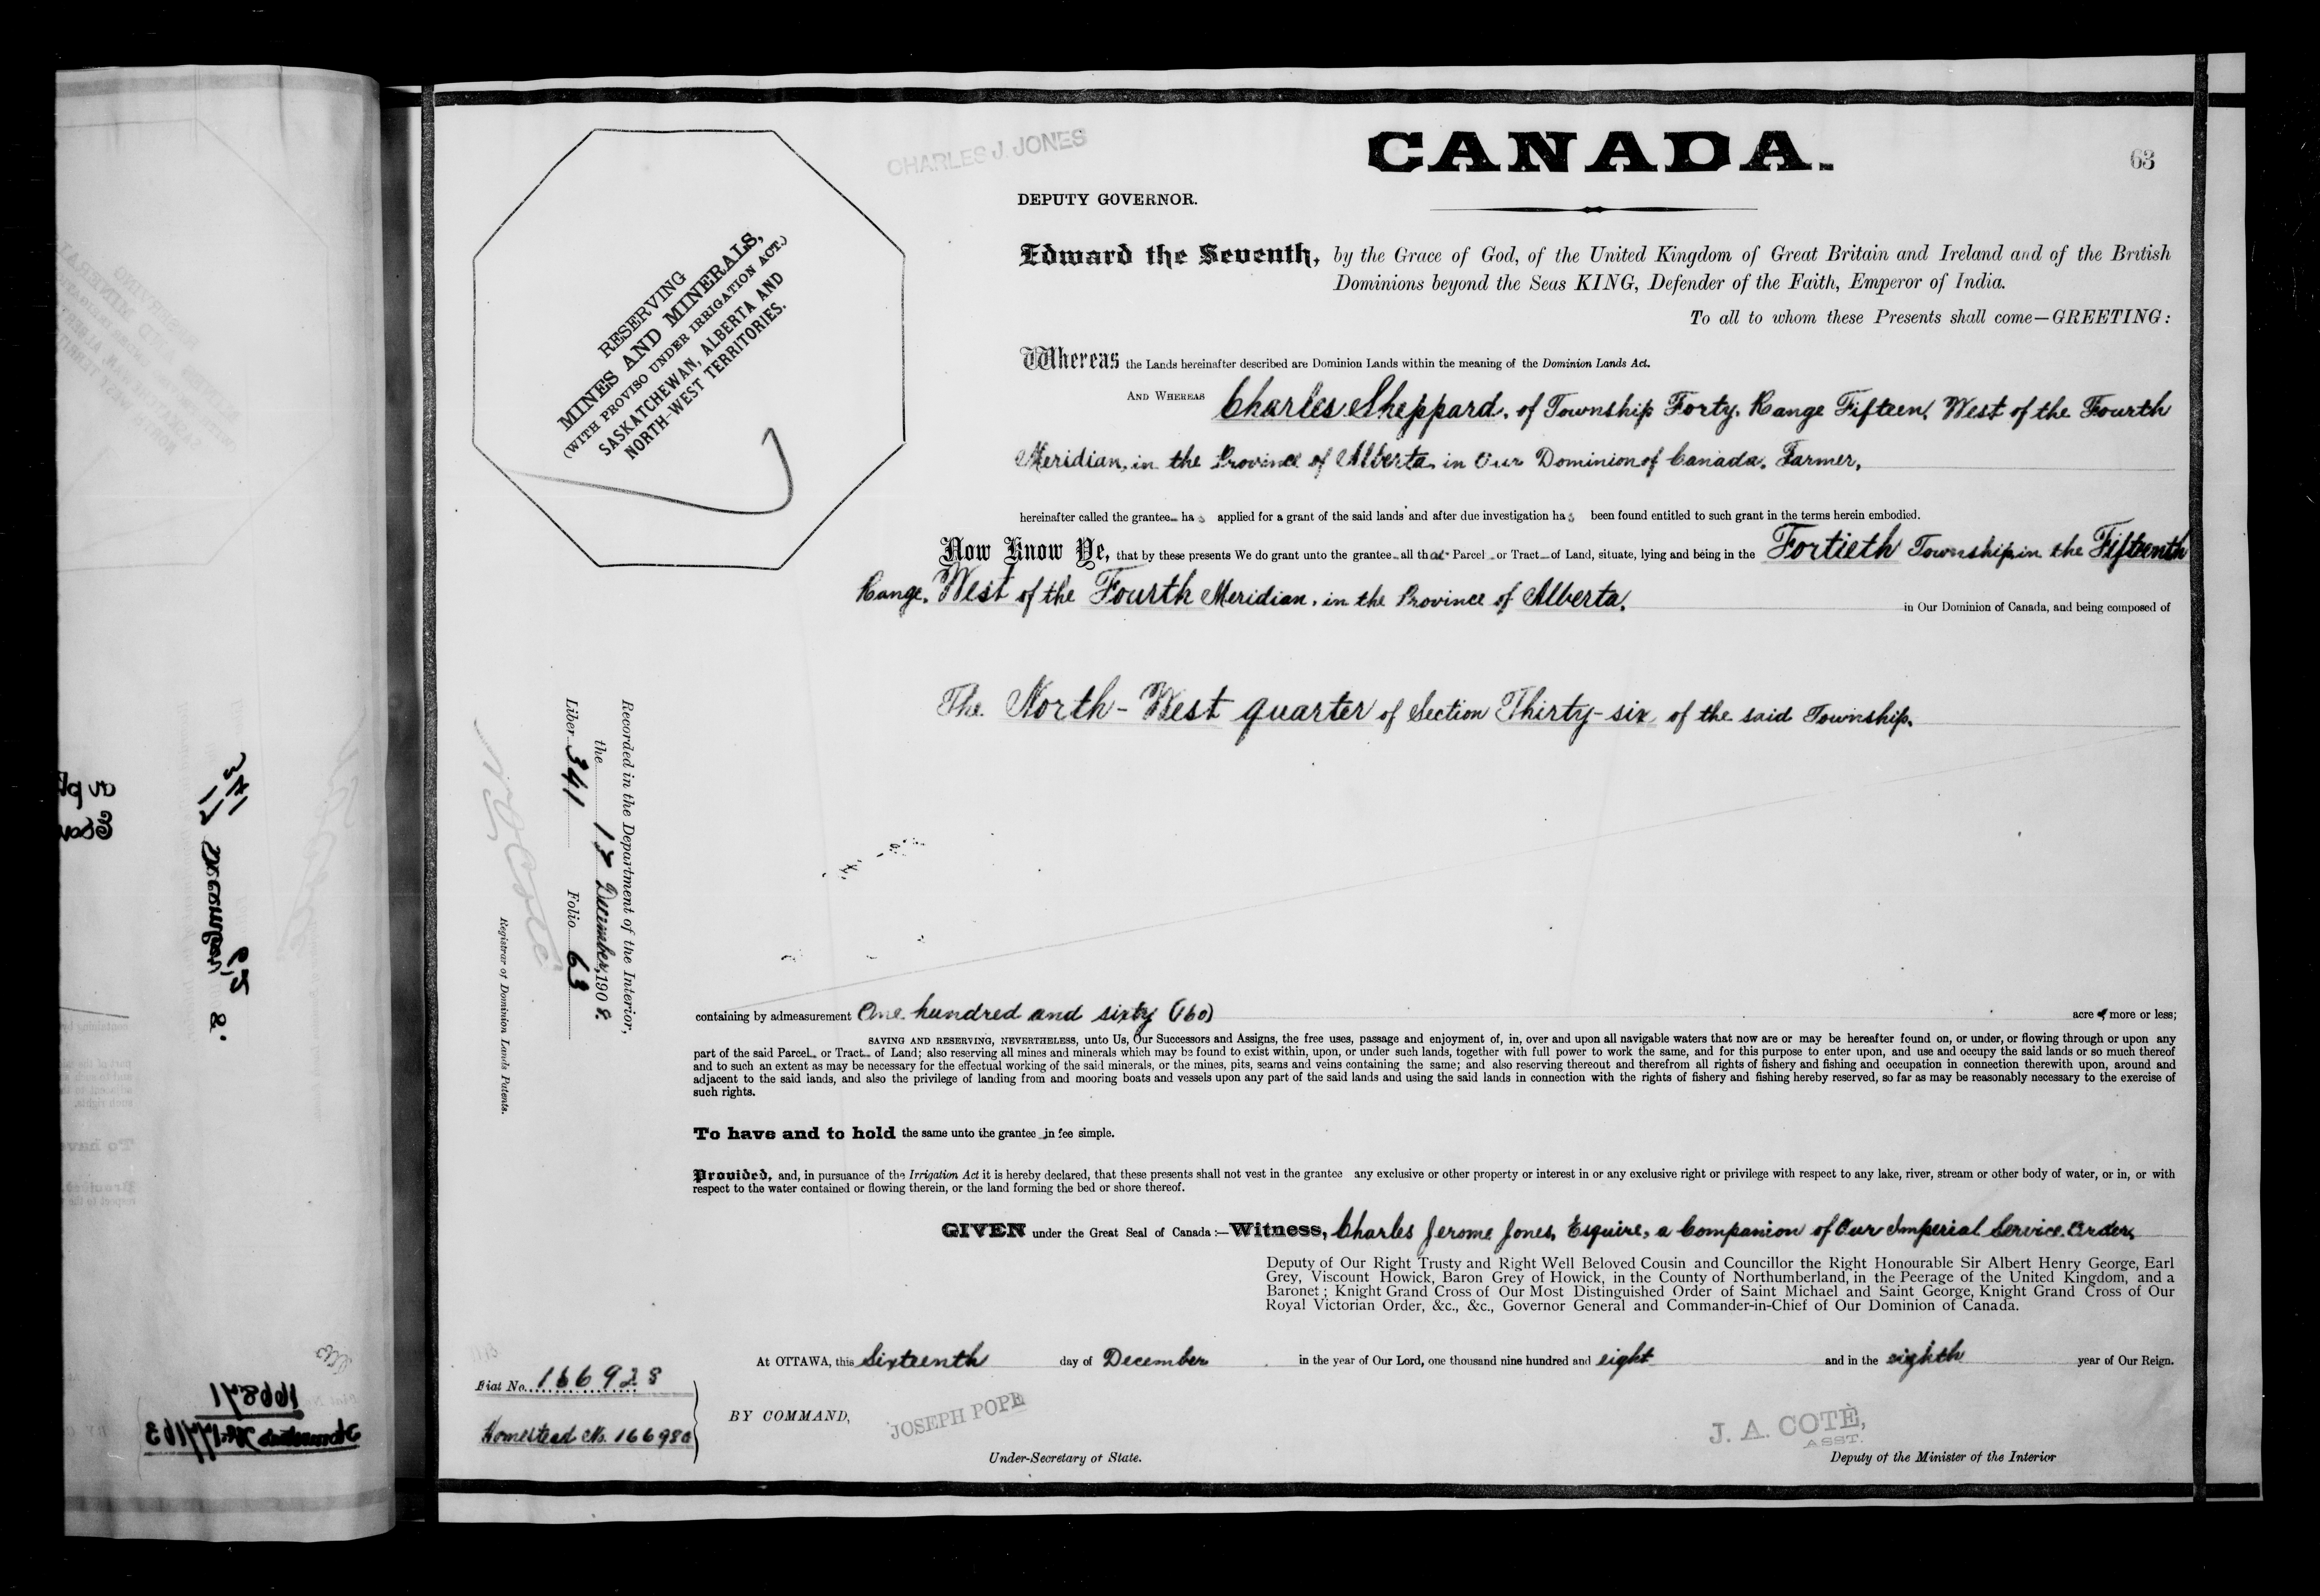 CHARLES J. JONES
CANADA.
63
DEPUTY GOVERNOR.
RESERVING
MINES AND MINERALS,
(WITH PROVISO UNDER IRRIGATION ACT.)
SASKATCHEWAN, ALBERTA AND
NORTH-WEST TERRITORIES.
Edward the Seventh, by the Grace of God, of the United Kingdom of Great Britain and Ireland and of the British
Dominions beyond the Seas KING, Defender of the Faith, Emperor of India.
To all to whom these Presents shall come—GREETING:
Whereas the Lands hereinafter described are Dominion Lands within the meaning of the Dominion Lands Act.
AND WHEREAS Charles Sheppard, of Township Forty, Range Fifteen, West of the Fourth
Meridian, in the Province of Alberta, in Our Dominion of Canada, Farmer,
hereinafter called the grantee has applied for a grant of the said lands and after due investigation has been found entitled to such grant in the terms herein embodied.
Now Know Ye, that by these presents We do grant unto the grantee all that Parcel or Tract of Land, situate, lying and being in the Fortieth Township in the Fifteenth
Range, West of the Fourth Meridian, in the Province of Alberta, in Our Dominion of Canada, and being composed of
The North-West quarter of Section Thirty-six, of the said Township.
Recorded in the Department of the Interior,
the 17 December, 1908.
Liber 341 Folio 63
Registrar of Dominion Lands Patents.
containing by admeasurement One hundred and sixty (160) acres more or less;
SAVING AND RESERVING, NEVERTHELESS, unto Us, Our Successors and Assigns, the free uses, passage and enjoyment of, in, over and upon all navigable waters that now are or may be hereafter found on, or under, or flowing through or upon any
part of the said Parcel or Tract of Land; also reserving all mines and minerals which may be found to exist within, upon, or under such lands, together with full power to work the same, and for this purpose to enter upon, and use and occupy the said lands or so much thereof
and to such an extent as may be necessary for the effectual working of the said minerals, or the mines, pits, seams and veins containing the same; and also reserving thereout and therefrom all rights of fishery and fishing and occupation in connection therewith upon, around and
adjacent to the said lands, and also the privilege of landing from and mooring boats and vessels upon any part of the said lands and using the said lands in connection with the rights of fishery and fishing hereby reserved, so far as may be reasonably necessary to the exercise of
such rights.
To have and to hold the same unto the grantee in fee simple.
Provided, and, in pursuance of the Irrigation Act it is hereby declared, that these presents shall not vest in the grantee any exclusive or other property or interest in or any exclusive right or privilege with respect to any lake, river, stream or other body of water, or in, or with
respect to the water contained or flowing therein, or the land forming the bed or shore thereof.
GIVEN under the Great Seal of Canada:—Witness, Charles Jerome Jones, Esquire, a Companion of Our Imperial Service Order,
Deputy of Our Right Trusty and Right Well Beloved Cousin and Councillor the Right Honourable Sir Albert Henry George, Earl
Grey, Viscount Howick, Baron Grey of Howick, in the County of Northumberland, in the Peerage of the United Kingdom, and a
Baronet; Knight Grand Cross of Our Most Distinguished Order of Saint Michael and Saint George, Knight Grand Cross of Our
Royal Victorian Order, &c., &c., Governor General and Commander-in-Chief of Our Dominion of Canada.
At OTTAWA, this Sixteenth day of December in the year of Our Lord, one thousand nine hundred and eight and in the eighth year of Our Reign.
Fiat No. 166928
Homestead No. 166980
BY COMMAND,
JOSEPH POPE
Under-Secretary of State.
J. A. COTÈ,
ASST.
Deputy of the Minister of the Interior